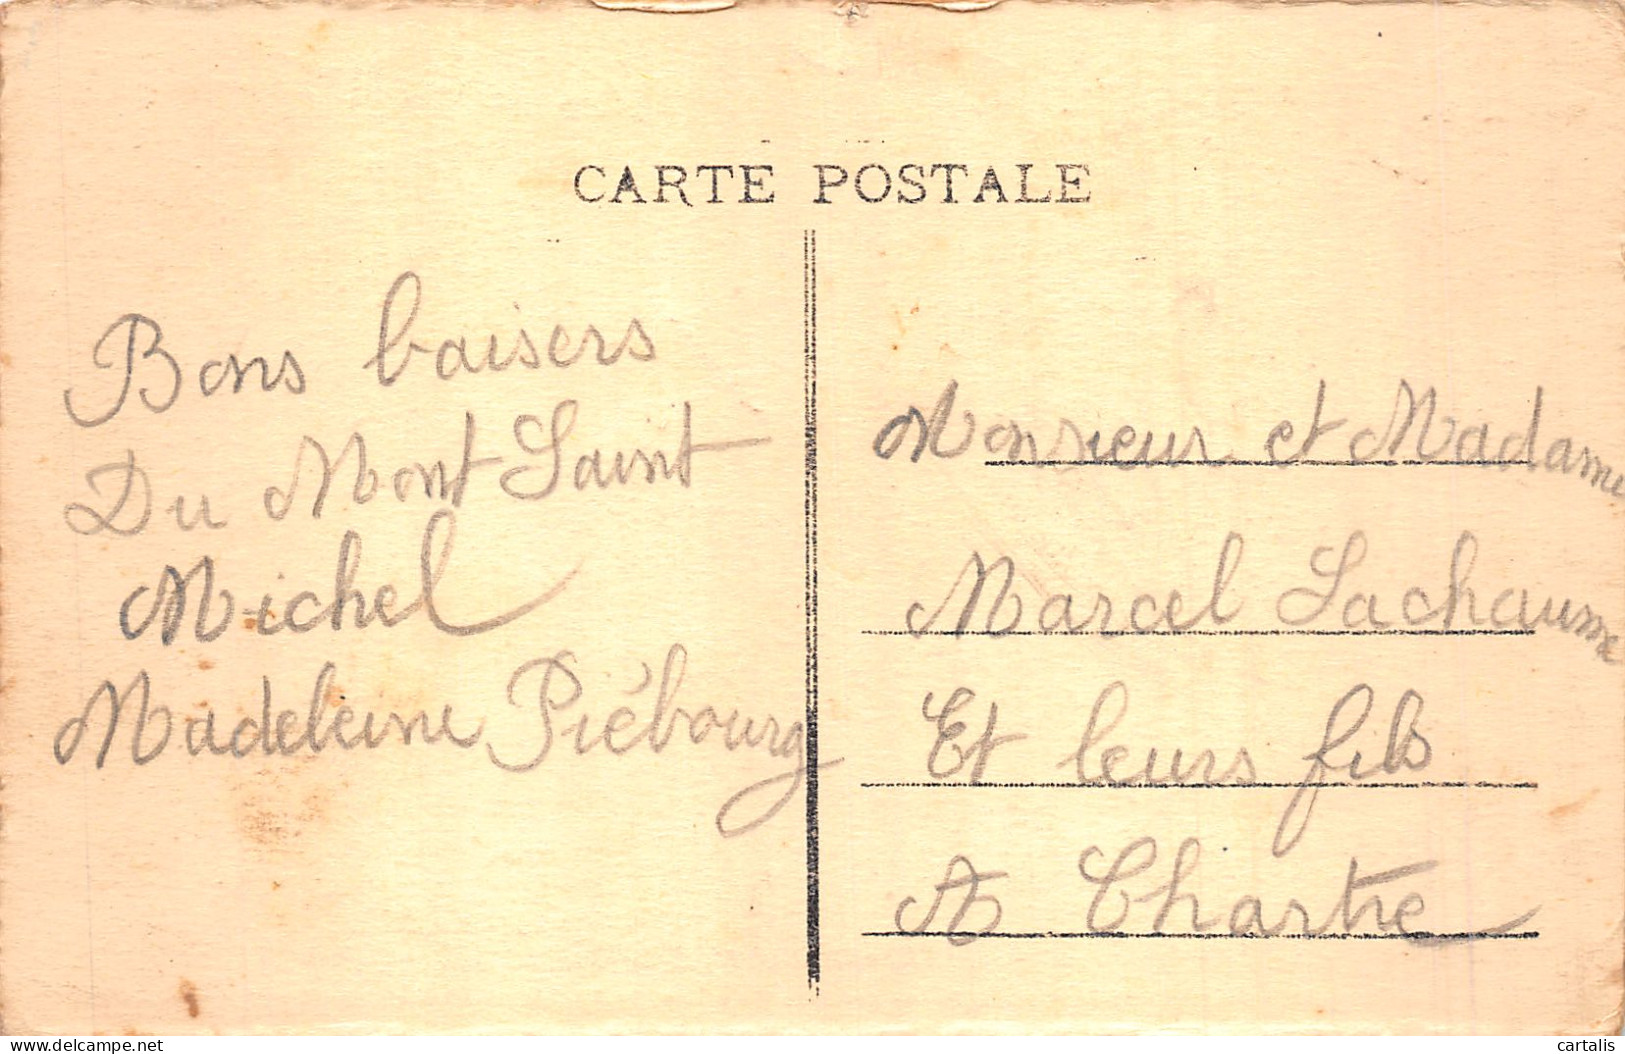 CARTE POSTALE
Bons baisers
Du Mont Saint
Michel
Madeleine Piébourg
Monsieur et Madame
Marcel Lachaume
Et leurs fils
A Chartre
www.delcampe.net
cartalis